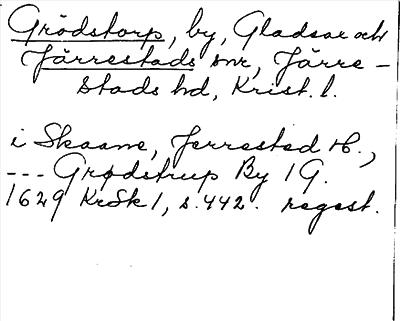 Grödstorp, by, Gladsax och
Järrestads snr, Järre-
stads hd, Krist. l.
i Skaane, Jerrested H.,
--- Grødstrup By 1 G.
1629 KrSk 1, s. 442. regest.